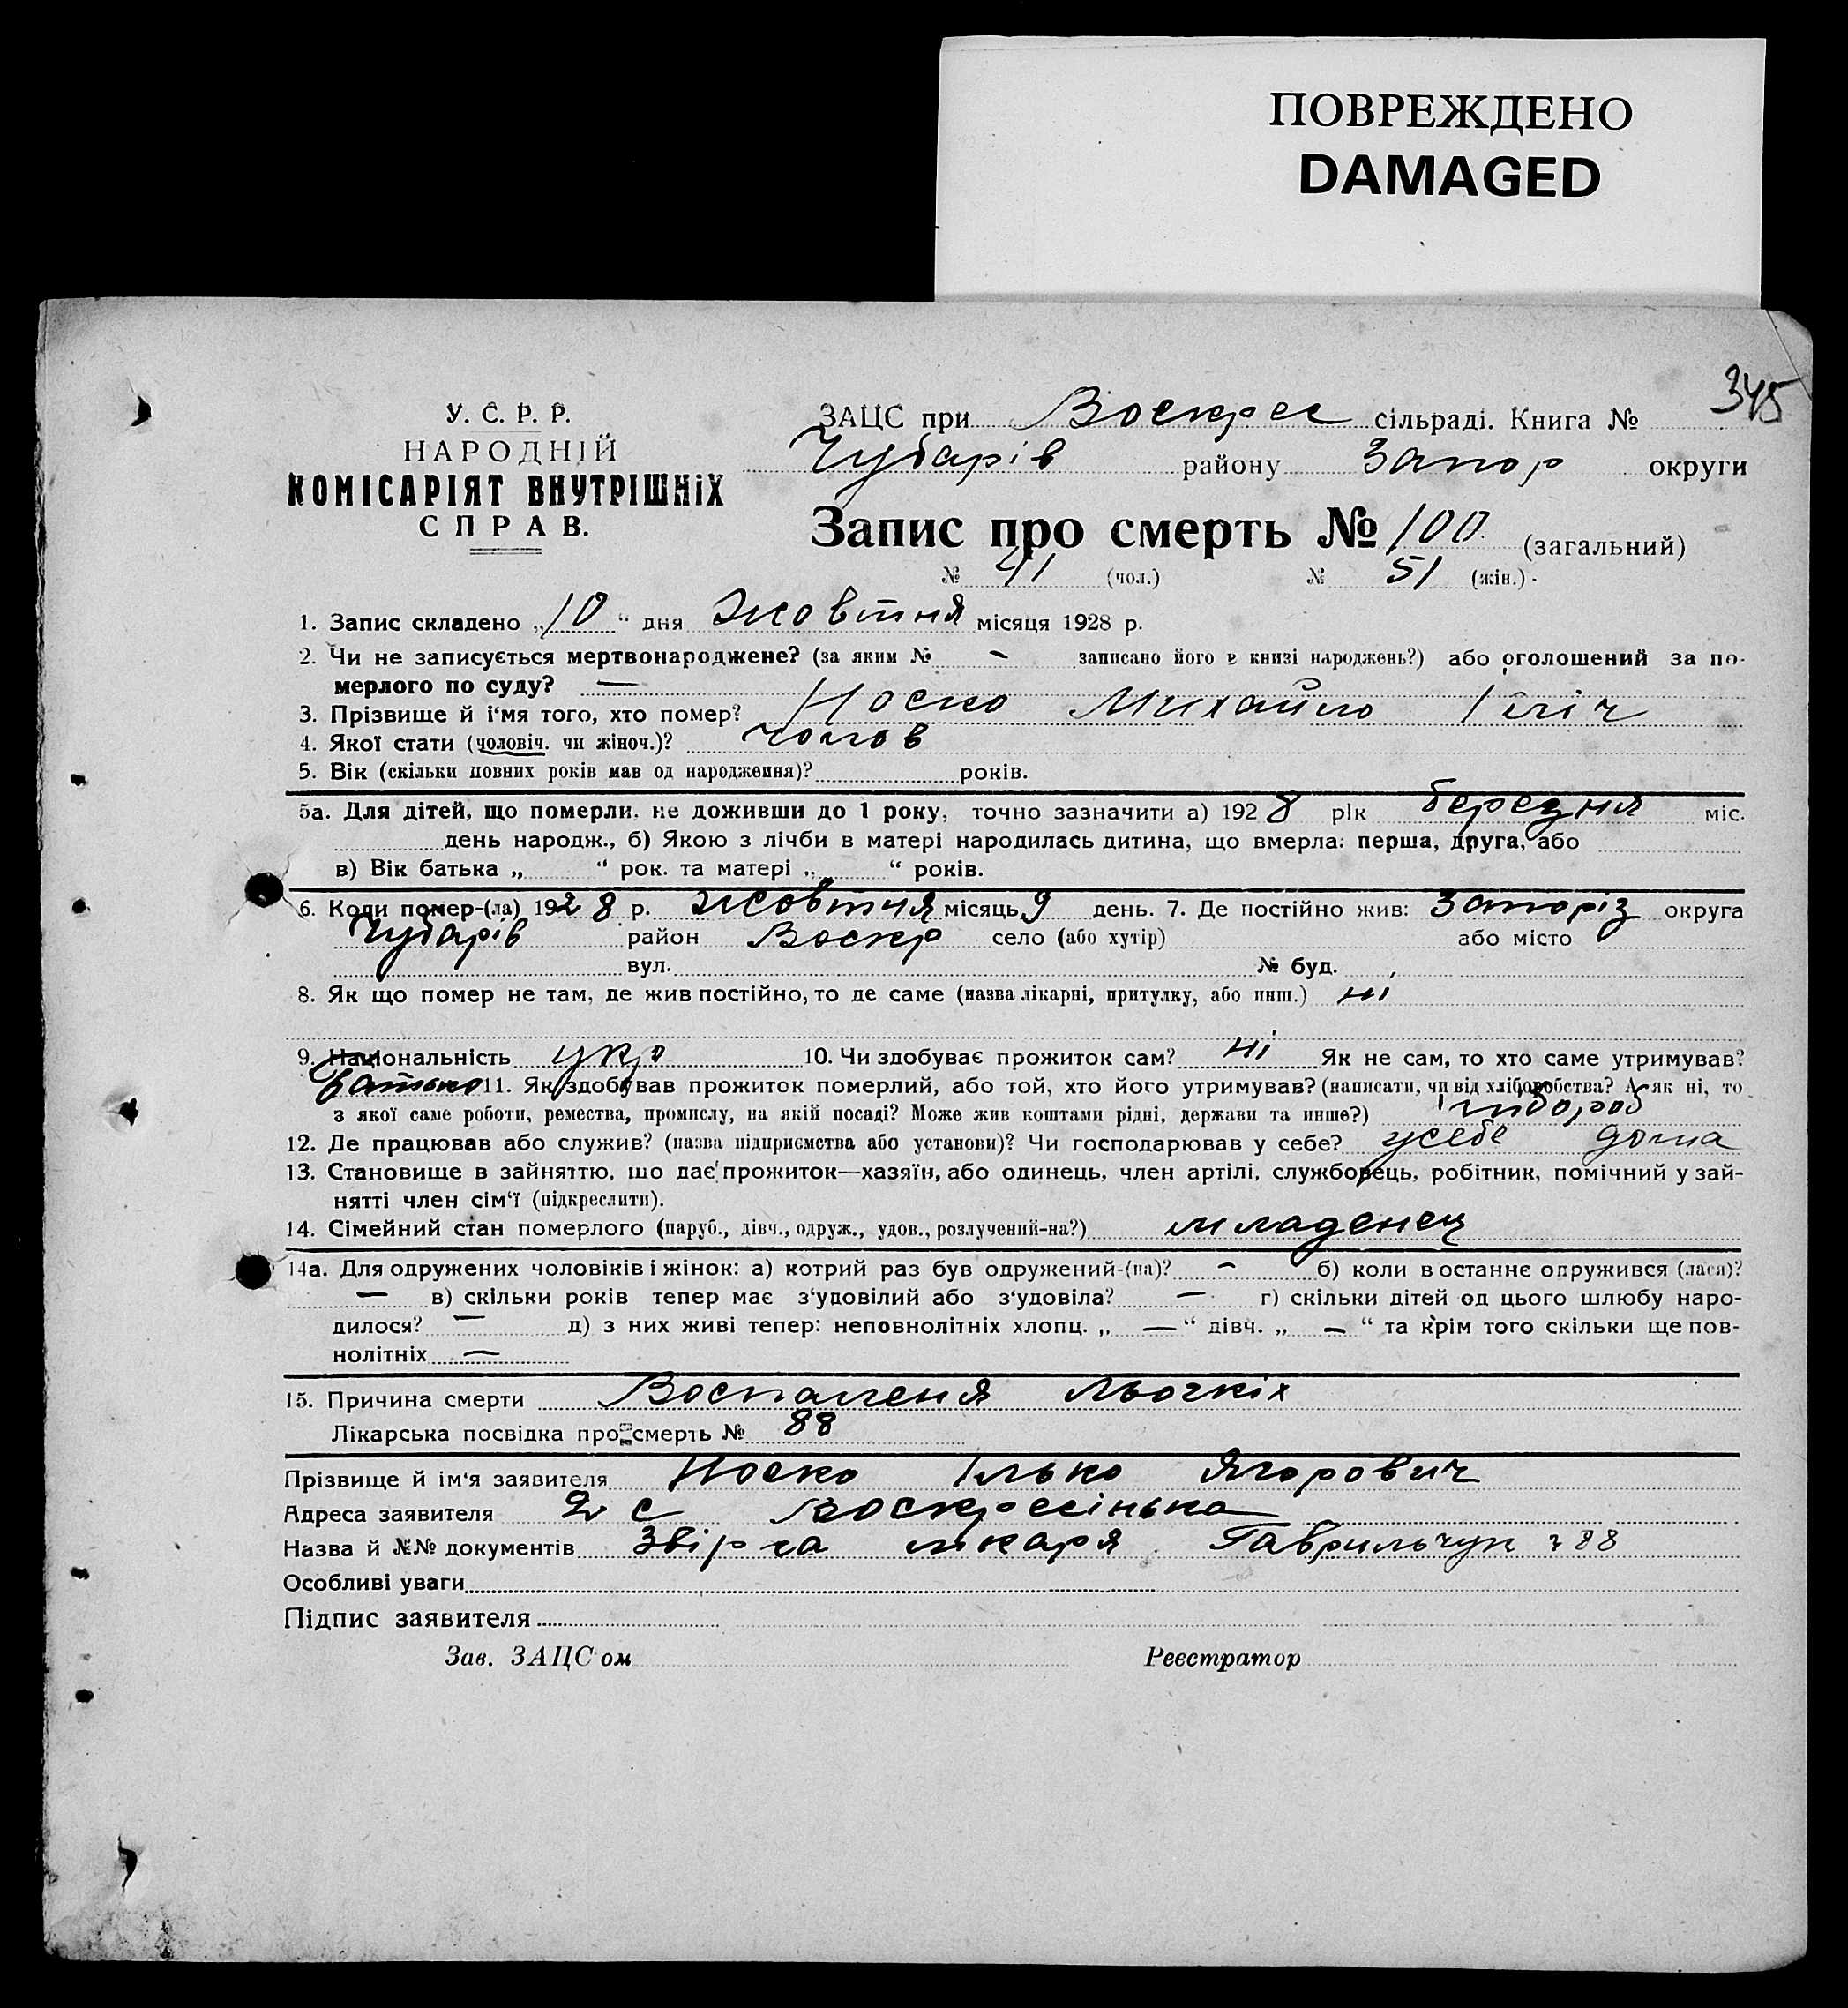 ПОВРЕЖДЕНО
DAMAGED
345
У. С. Р. Р.
НАРОДНІЙ
КОМІСАРІЯТ ВНУТРІШНІХ
СПРАВ.
ЗАЦС при Воскрес сільраді. Книга №
Чубарів району Запор округи
Запис про смерть № 100 (загальний)
№ 41 (чол.) № 51 (жін.)
1. Запис складено „10“ дня жовтня місяця 1928 р.
2. Чи не записується мертвонароджене? (за яким № – записано його в книзі народжень?) або оголошений за по-
мерлого по суду? —
3. Прізвище й і'мя того, хто помер? Носко Михайло Іліч
4. Якої стати (чоловіч. чи жіноч.)? чолов
5. Вік (скільки повних років мав од народження)? років.
5а. Для дітей, що померли, не доживши до 1 року, точно зазначити а) 1928 рік березня міс.
день народж., б) Якою з лічби в матері народилась дитина, що вмерла: перша, друга, або
в) Вік батька „ “ рок. та матері „ “ років.
6. Коли помер-(ла) 1928 р. жовтня місяць 9 день. 7. Де постійно жив: Запоріз округа
Чубарів район Воскр село (або хутір) або місто
вул. № буд.
8. Як що помер не там, де жив постійно, то де саме (назва лікарні, притулку, або инш.) ні
9. Національність укр 10. Чи здобуває прожиток сам? ні Як не сам, то хто саме утримував?
батько 11. Як здобував прожиток померлий, або той, хто його утримував? (написати, чи від хліборобства? А як ні, то
з якої саме роботи, ремества, промислу, на якій посаді? Може жив коштами рідні, держави та инше?) хлібороб
12. Де працював або служив? (назва підприємства або установи)? Чи господарював у себе? усебе дома
13. Становище в зайняттю, що дає прожиток—хазяїн, або одинець, член артілі, службовець, робітник, помічний у зай-
нятті член сім'ї (підкреслити).
14. Сімейний стан померлого (паруб., дівч., одруж., удов., розлучений-на?) младенец
14а. Для одружених чоловіків і жінок: а) котрий раз був одружений-(на)? – б) коли в останнє одружився (лася)?
— в) скільки років тепер має з'удовілий або з'удовіла? — г) скільки дітей од цього шлюбу наро-
дилося? — д) з них живі тепер: неповнолітніх хлопц. „ — “ дівч. „ — “ та крім того скільки ще пов-
нолітніх —
15. Причина смерти Воспаленя льочкіх
Лікарська посвідка про смерть № 88
Прізвище й ім'я заявителя Носко Ілько Ягорович
Адреса заявителя с Воскресінька
Назва й №№ документів лікаря Гаврильчук 88
Особливі уваги
Підпис заявителя
Зав. ЗАЦС ом Реєстратор